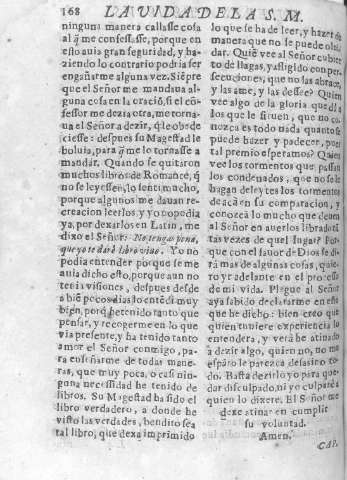 168 LA VIDA DE LA S. M.
ninguna manera callasse cosa
al q̃ me confessasse, porque en
esto auia gran seguridad, y ha-
ziendo lo contrario podria ser
engañarme alguna vez. Siẽpre
que el Señor me mandaua al-
guna cosa en la oraciõ, si el cõ-
fessor me dezia otra, me torna-
ua el Señor a dezir, q̃ le obede-
ciesse: despues su Magestad le
boluia, para q̃ me lo tornasse a
mandar. Quando se quitaron
muchos libros de Romance, q̃
no se leyessen, lo senti mucho,
porque algunos me dauan re-
creacion leerlos, y yo no podia
ya, por dexarlos en Latin, me
dixo el Señor: No tengas pena,
que yo te daré libro viuo. Yo no
podia entender porque se me
auia dicho esto, porque aun no
tenia visiones, despues desde
a biẽ pocos dias lo entẽdi muy
bien, porq̃ he tenido tanto que
pensar, y recogerme en lo que
via presente, y ha tenido tanto
amor el Señor conmigo, pa-
ra enseñarme de todas mane-
ras, que muy poca, o casi nin-
guna necessidad he tenido de
libros. Su Magestad ha sido el
libro verdadero, a donde he
visto las verdades, bendito sea
tal libro, que dexa imprimido
lo que se ha de leer, y hazer de
manera que no se puede olui-
dar. Quiẽ vee al Señor cubier-
to de llagas, y afligido con per-
secuciones, que no las abrace,
y las ame, y las dessee? Quien
vee algo de la gloria que dá a
los que le siruen, que no co-
nozca es todo nada quanto se
puede hazer y padecer, pues
tal premio esperamos? Quien
vee los tormentos que passan
los condenados, que no se le
hagan deleytes los tormentos
de acá en su comparacion, y
conozcã lo mucho que deuen
al Señor en auerlos librado tã-
tas vezes de quel lugar? Por-
que con el fauor de Dios se di-
rá mas de algunas cosas, quie-
ro yr adelante en el processo
de mi vida. Plegue al Señor
aya sabido declararme en esto
que he dicho: bien creo que
quien tuuiere experiencia lo
entenderá, y verá he atinado
a dezir algo, quien no, no me
espãto le parezca desatino to-
do. Basta dezirlo yo para que-
dar disculpado, ni yo culparé a
quien lo dixere. El Señor me
dexe atinar en cumplir
su voluntad.
Amen.
CAP.